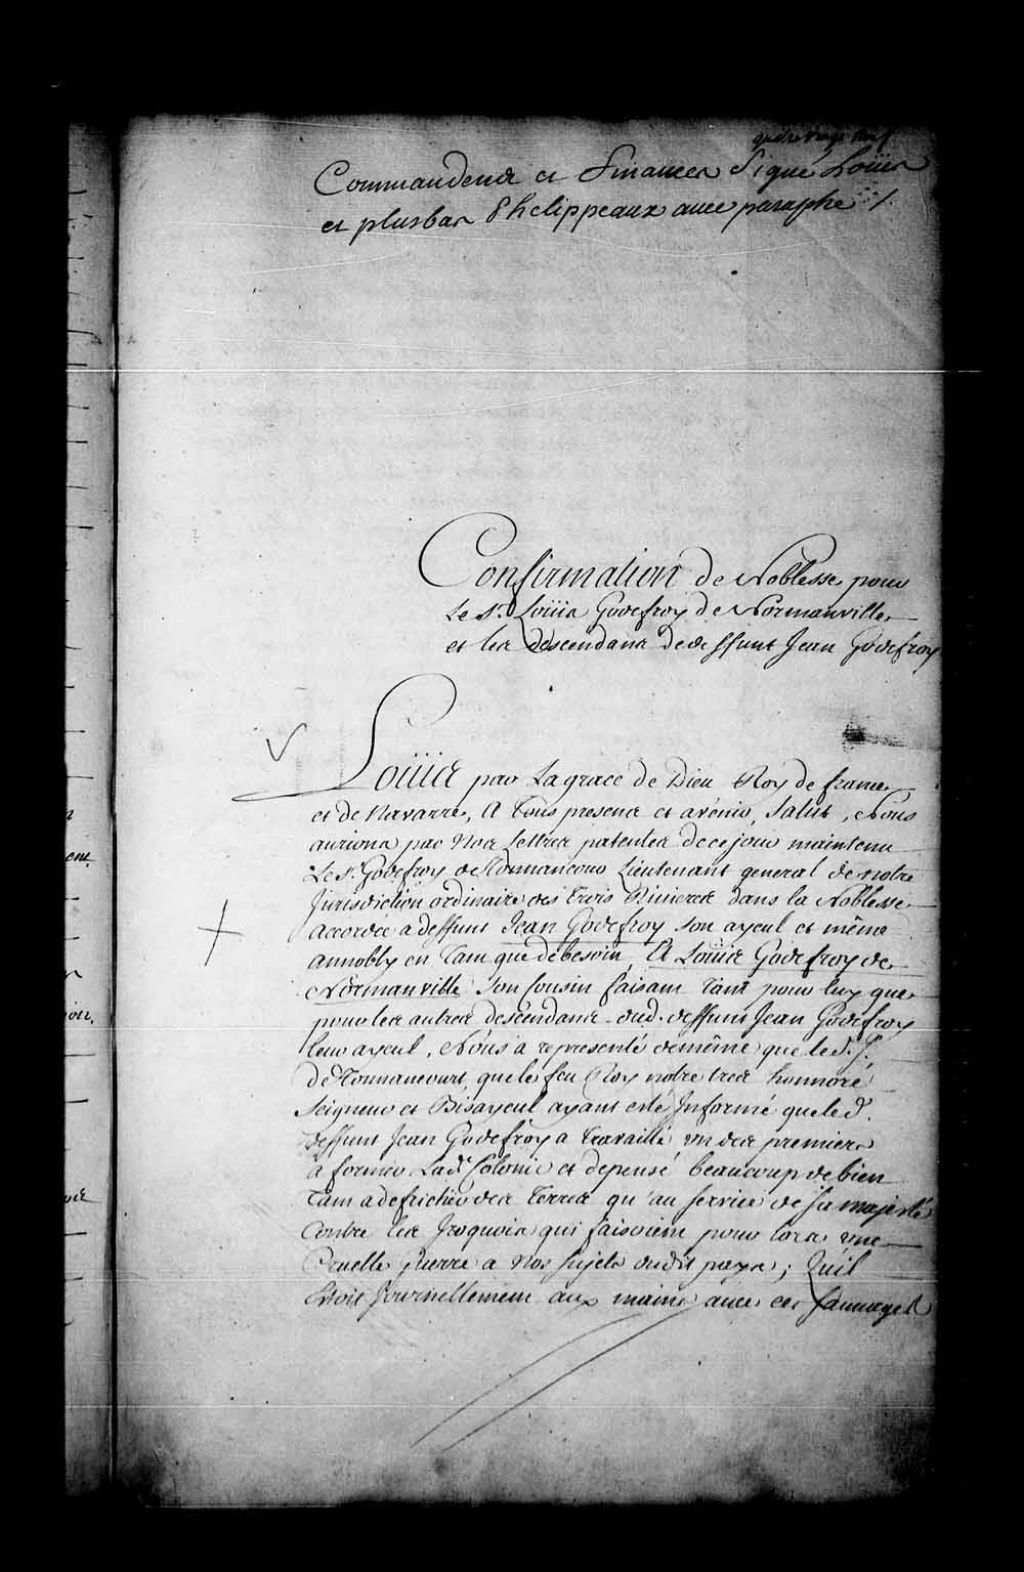 quatre vingt neuf
Commanderie et Finances Signé Loüis
et plus bas Phelippeaux avec paraphe ./.
Confirmation de Noblesse pour
Le Sr. Loüis Godefroy de Normanville
et les descendans de deffunt Jean Godefroy
Loüis par La grace de Dieu Roy de france
et de Navarre, A Tous presens et avenir, Salut, Nous
aurions par Nos Lettres patentes de ce jour maintenu
Le Sr. Godefroy de Tonnancour Lieutenant general de notre
Jurisdiction ordinaire des Trois Rivieres dans la Noblesse
accordée a deffunt Jean Godefroy son ayeul et même
annobly en Tant que de besoin, Et Loüis Godefroy de
Normanville son Cousin faisant Tant pour luy que
pour les autres descendans dud. deffunt Jean Godefroy
leur ayeul, Nous a representé de même que led. Sr.
de Tonnancourt, que le feu Roy notre tres honnoré
Seigneur et Bisayeul ayant esté Informé que led.
deffunt Jean Godefroy a Travaillé un des premiers
a former Lad. Colonie et depensé beaucoup de bien
Tant a defricher des Terres qu'au service de sa majesté
Contre les Iroquois qui faisoient pour lors une
Cruelle guerre a Nos sujets dudit pays; Qu'il
Estoit Journellement aux mains avec ces sauvages